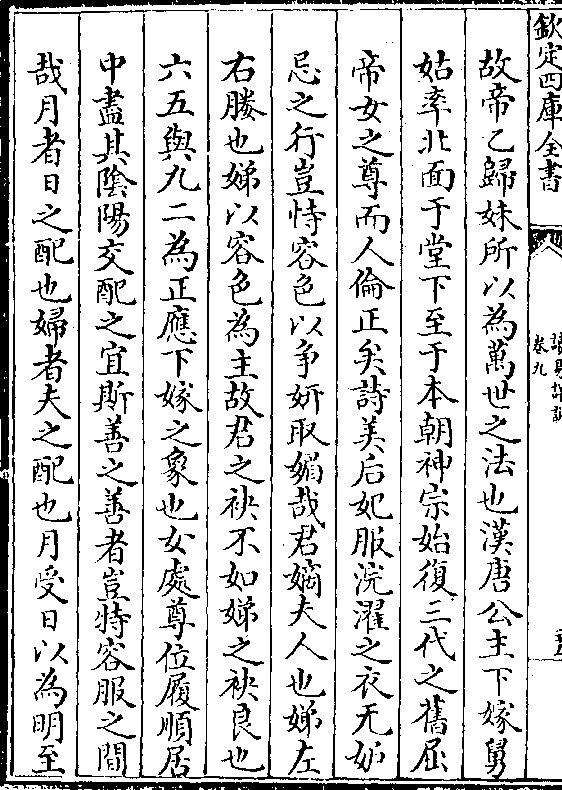 欽定四庫全書
卷九
故帝乙歸妹所以為萬世之法也漢唐公主下嫁舅
姑率北面于堂下至于本朝神宗始復三代之舊屈
帝女之尊而人倫正矣詩美后妃服浣濯之衣无妒
忌之行豈恃容色以争妍取媚哉君嫡夫人也娣左
右媵也娣以容色為主故君之袂不如娣之袂良也
六五與九二為正應下嫁之象也女處尊位履順居
中盡其陰陽交配之宜斯善之善者豈特容服之間
哉月者日之配也婦者夫之配也月受日以為明至